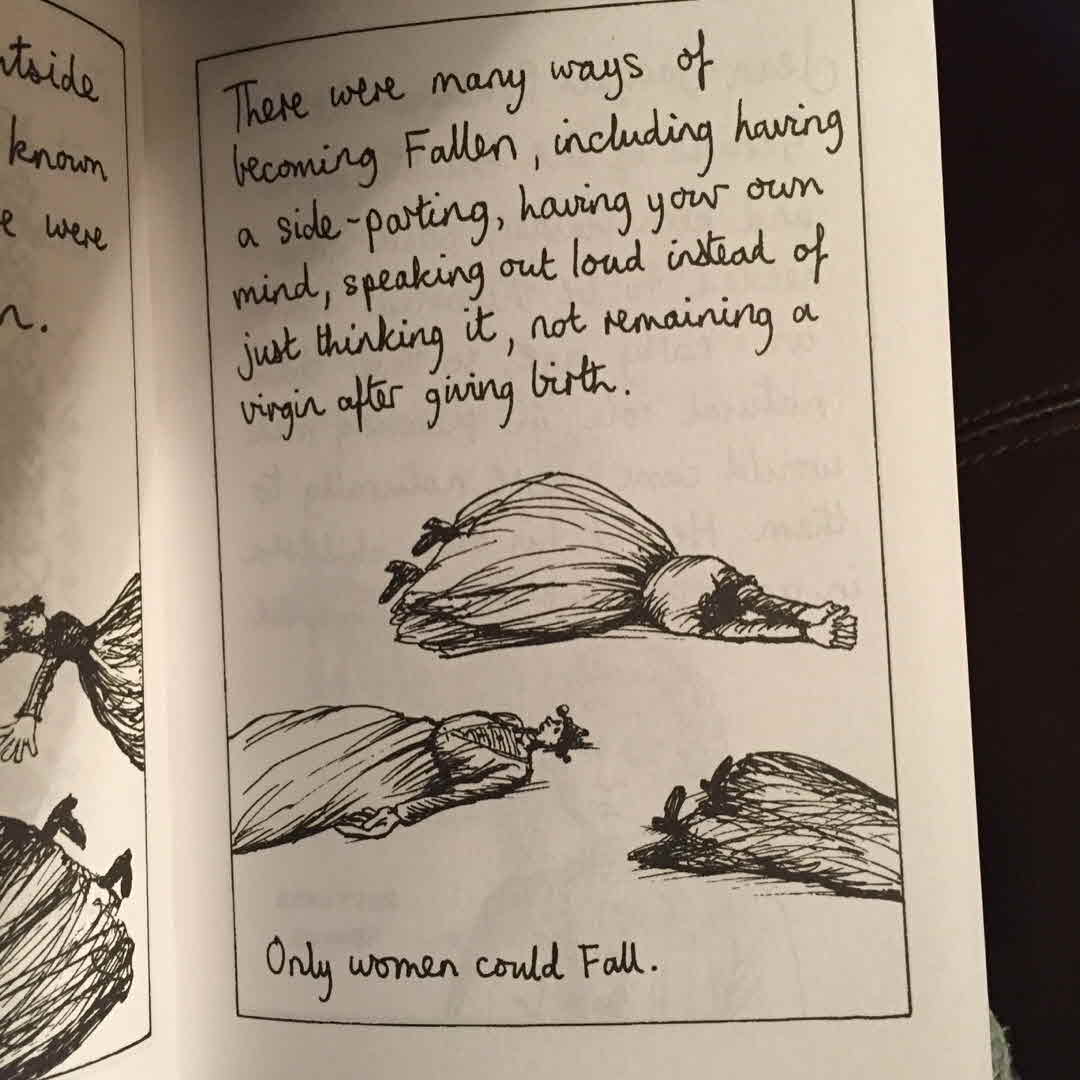 ntside
known
e were
n.
There were many ways of
becoming Fallen, including having
a side-parting, having your own
mind, speaking out loud instead of
just thinking it, not remaining a
virgin after giving birth.
Only women could Fall.